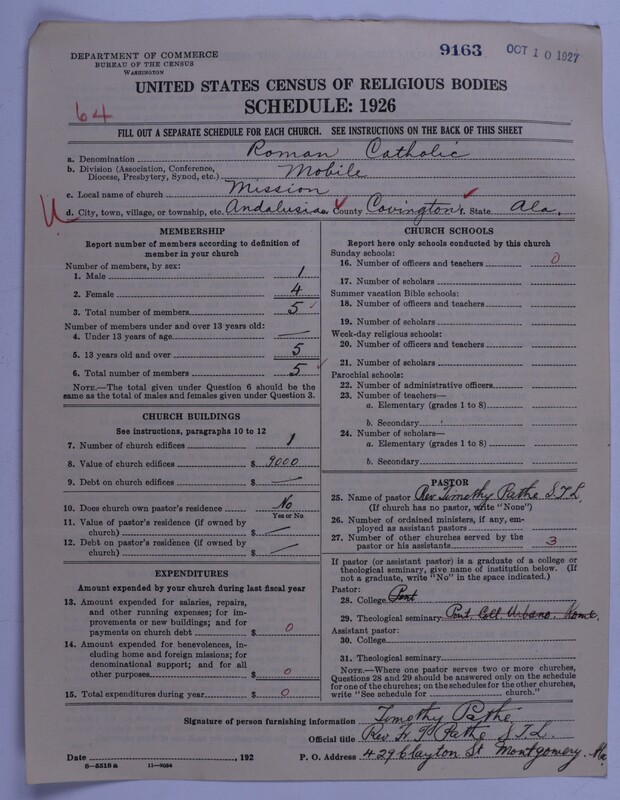 DEPARTMENT OF COMMERCE
BUREAU OF THE CENSUS
WASHINGTON
9163 OCT 10 1927
UNITED STATES CENSUS OF RELIGIOUS BODIES
SCHEDULE: 1926
64
FILL OUT A SEPARATE SCHEDULE FOR EACH CHURCH. SEE INSTRUCTIONS ON THE BACK OF THIS SHEET
a. Denomination Roman Catholic
b. Division (Association, Conference,
Diocese, Presbytery, Synod, etc.) Mobile
c. Local name of church Mission
d. City, town, village, or township, etc. Andalusia County Covington State Ala.
MEMBERSHIP
Report number of members according to definition of
member in your church
Number of members, by sex:
1. Male 1
2. Female 4
3. Total number of members 5
Number of members under and over 13 years old:
4. Under 13 years of age —
5. 13 years old and over 5
6. Total number of members 5
NOTE.—The total given under Question 6 should be the
same as the total of males and females given under Question 3.
CHURCH BUILDINGS
See instructions, paragraphs 10 to 12
7. Number of church edifices 1
8. Value of church edifices $ 9000
9. Debt on church edifices $ —
10. Does church own pastor's residence? No
Yes or No
11. Value of pastor's residence (if owned by
church) $ —
12. Debt on pastor's residence (if owned by
church) $ —
EXPENDITURES
Amount expended by your church during last fiscal year
13. Amount expended for salaries, repairs,
and other running expenses; for im-
provements or new buildings; and for
payments on church debt $ 0
14. Amount expended for benevolences, in-
cluding home and foreign missions; for
denominational support; and for all
other purposes $ 0
15. Total expenditures during year $ 0
CHURCH SCHOOLS
Report here only schools conducted by this church
Sunday schools:
16. Number of officers and teachers 0
17. Number of scholars
Summer vacation Bible schools:
18. Number of officers and teachers
19. Number of scholars
Week-day religious schools:
20. Number of officers and teachers
21. Number of scholars
Parochial schools:
22. Number of administrative officers
23. Number of teachers—
a. Elementary (grades 1 to 8)
b. Secondary
24. Number of scholars—
a. Elementary (grades 1 to 8)
b. Secondary
PASTOR
25. Name of pastor Rev. Timothy Pathe S.T.L.
(If church has no pastor, write "None")
26. Number of ordained ministers, if any, em-
ployed as assistant pastors
27. Number of other churches served by the
pastor or his assistants 3
If pastor (or assistant pastor) is a graduate of a college or
theological seminary, give name of institution below. (If
not a graduate, write "No" in the space indicated.)
Pastor:
28. College Pont
29. Theological seminary Pont. Coll. Urbano. Rome.
Assistant pastor:
30. College
31. Theological seminary
NOTE.—Where one pastor serves two or more churches,
Questions 28 and 29 should be answered only on the schedule
for one of the churches; on the schedules for the other churches,
write "See schedule for church."
Signature of person furnishing information Timothy Pathe
Official title Rev. Pathe S.T.L.
Date , 192 P. O. Address 429 Clayton St Montgomery, Ala
8—5518a 11—9034